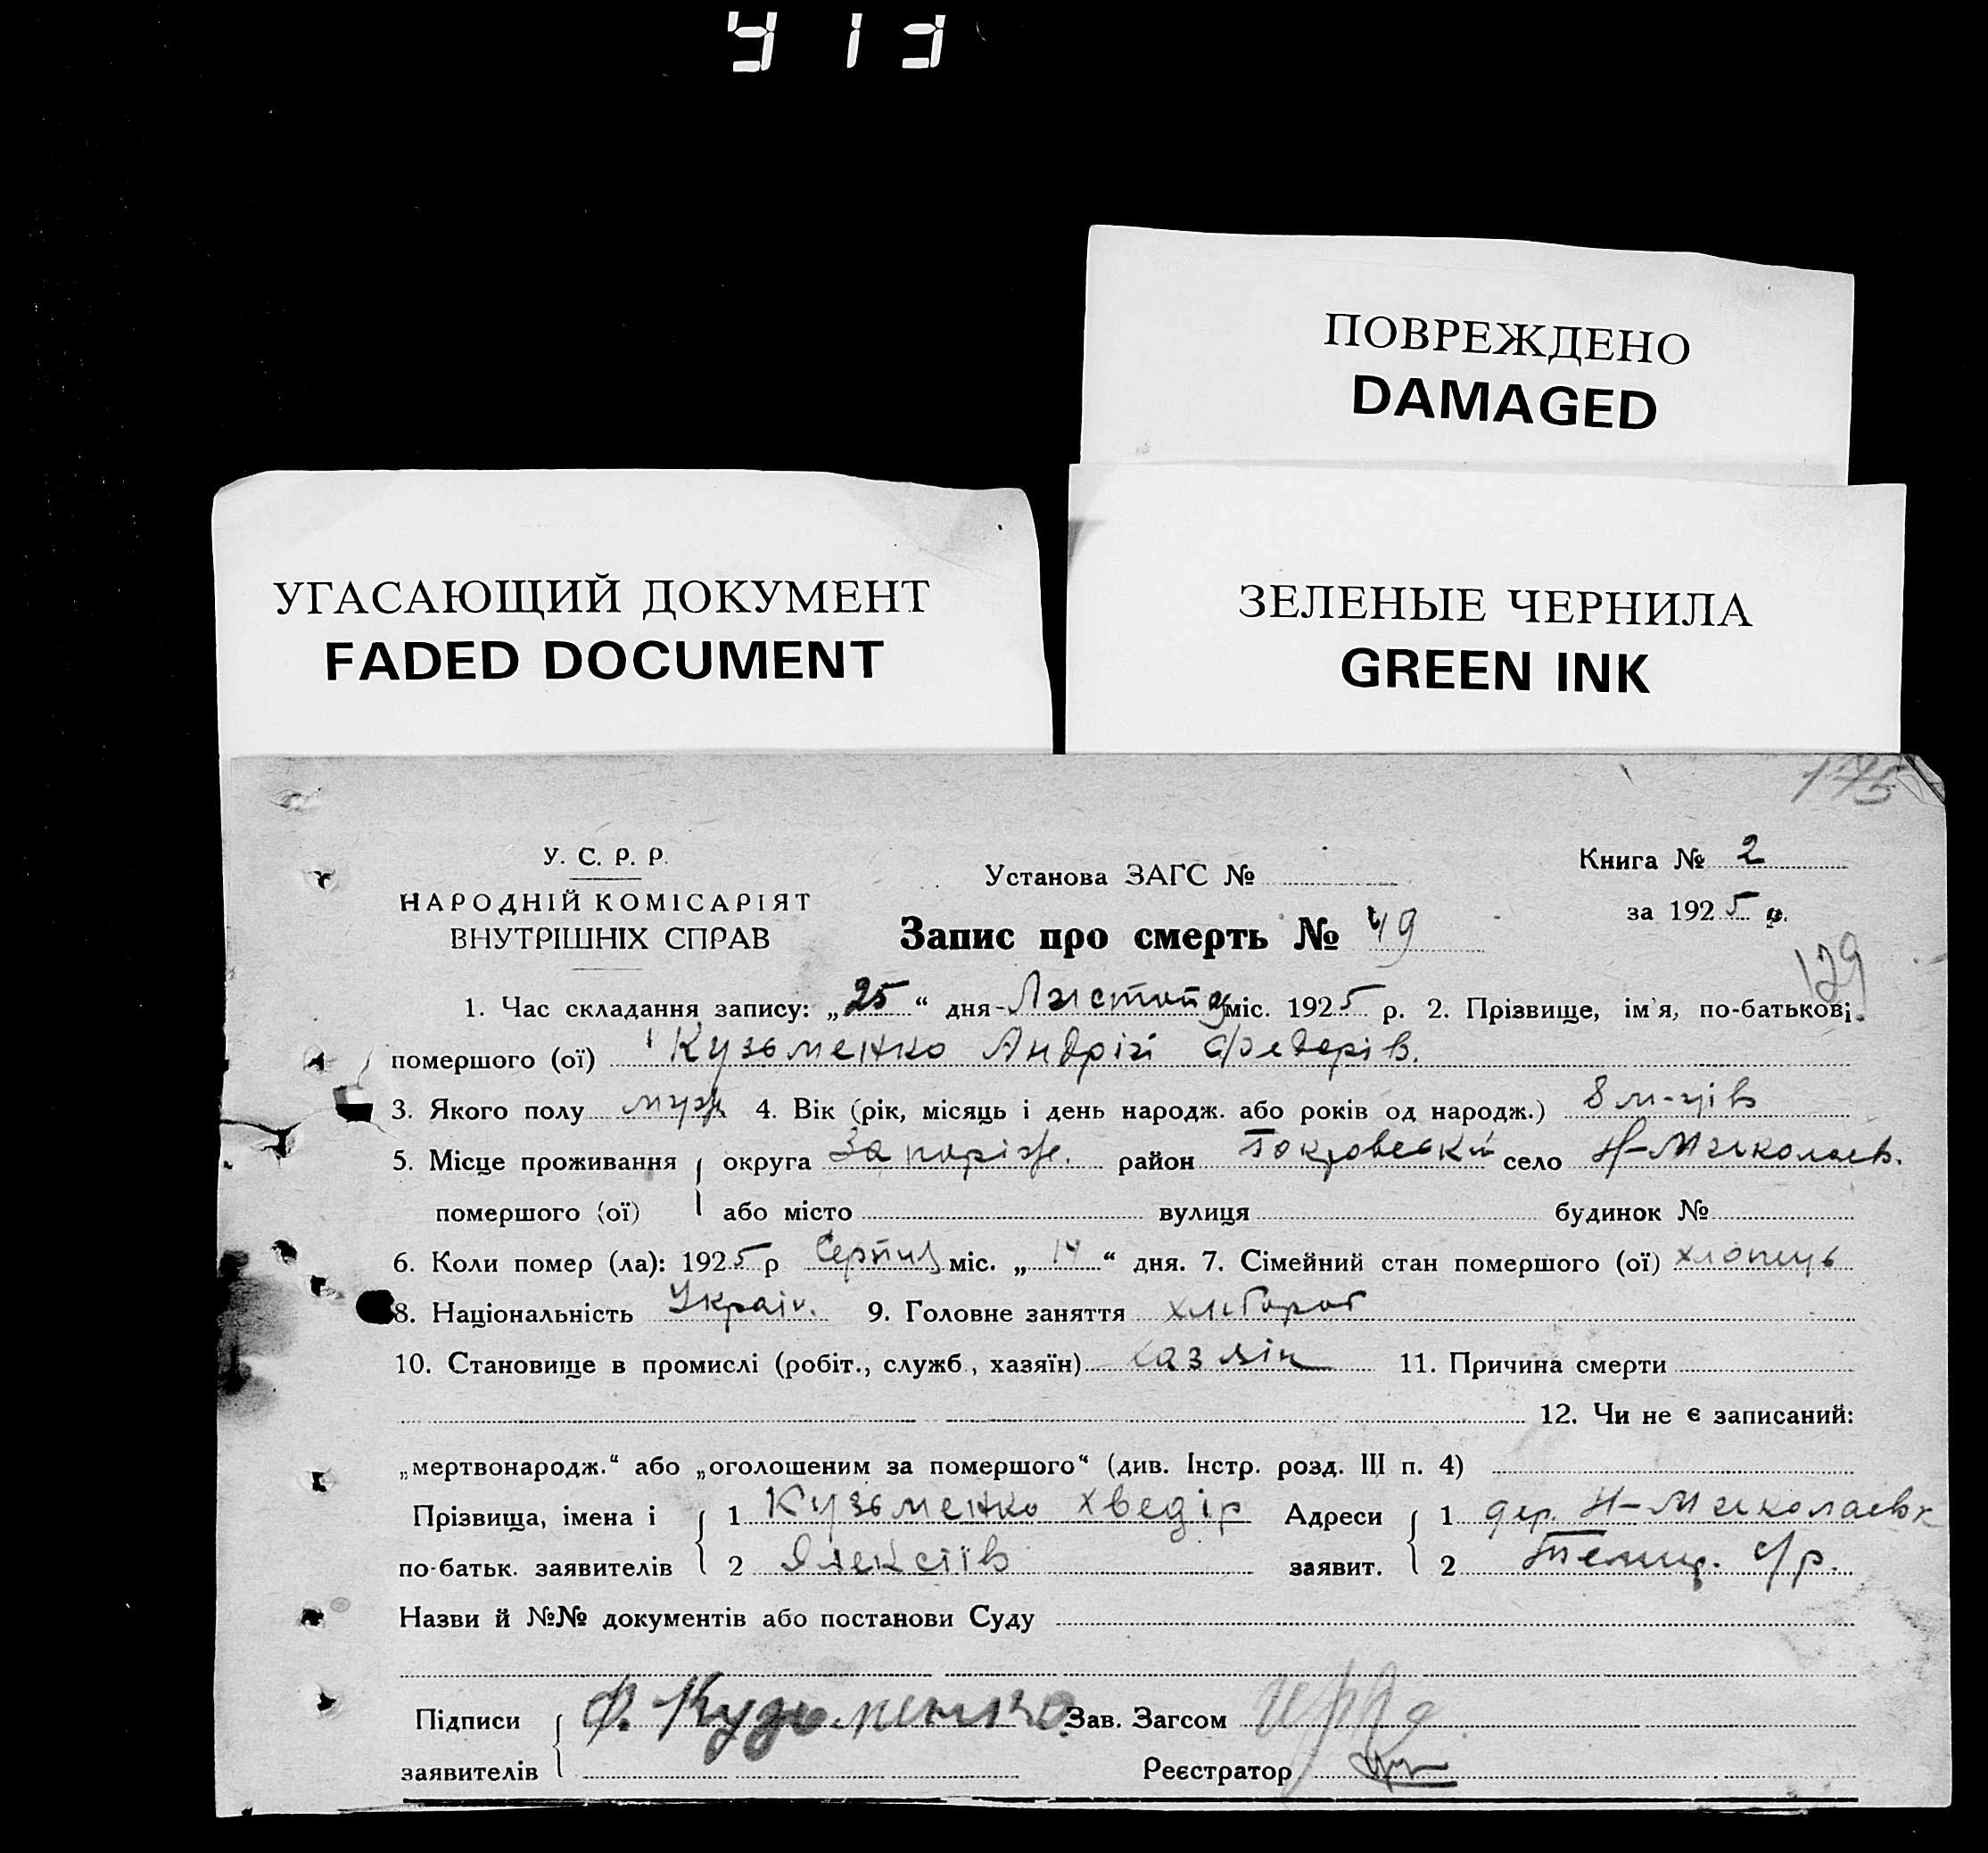 413
ПОВРЕЖДЕНО
DAMAGED
УГАСАЮЩИЙ ДОКУМЕНТ
FADED DOCUMENT
ЗЕЛЕНЫЕ ЧЕРНИЛА
GREEN INK
175
У. С. Р. Р.
НАРОДНІЙ КОМІСАРІЯТ
ВНУТРІШНІХ СПРАВ
Установа ЗАГС №
Запис про смерть № 49
Книга № 2
за 1925 р.
129
1. Час складання запису: „25“ дня Листопад міс. 1925 р. 2. Прізвище, ім'я, по-батькові
помершого (ої) Кузьменко Андрій Федорів.
3. Якого полу муж 4. Вік (рік, місяць і день народж. або років од народж.) 8 м-ців
5. Місце проживання округа Запоріж. район Покровський село Н-Миколаев.
помершого (ої) або місто вулиця будинок №
6. Коли помер (ла): 1925 р Серпня міс. „14“ дня. 7. Сімейний стан помершого (ої) хлопець
8. Національність Україн. 9. Головне заняття хлібороб
10. Становище в промислі (робіт., служб., хазяїн) хазяїн 11. Причина смерти
12. Чи не є записаний:
„мертвонародж.“ або „оголошеним за помершого“ (див. Інстр. розд. III п. 4)
Прізвища, імена і 1 Кузьменко Хведір Адреси 1 дер. Н-Миколаевк
по-батьк. заявителів 2 Олексіїв заявит. 2 с/р.
Назви й №№ документів або постанови Суду
Підписи Ф. Кузьменко Зав. Загсом
заявителів Реєстратор